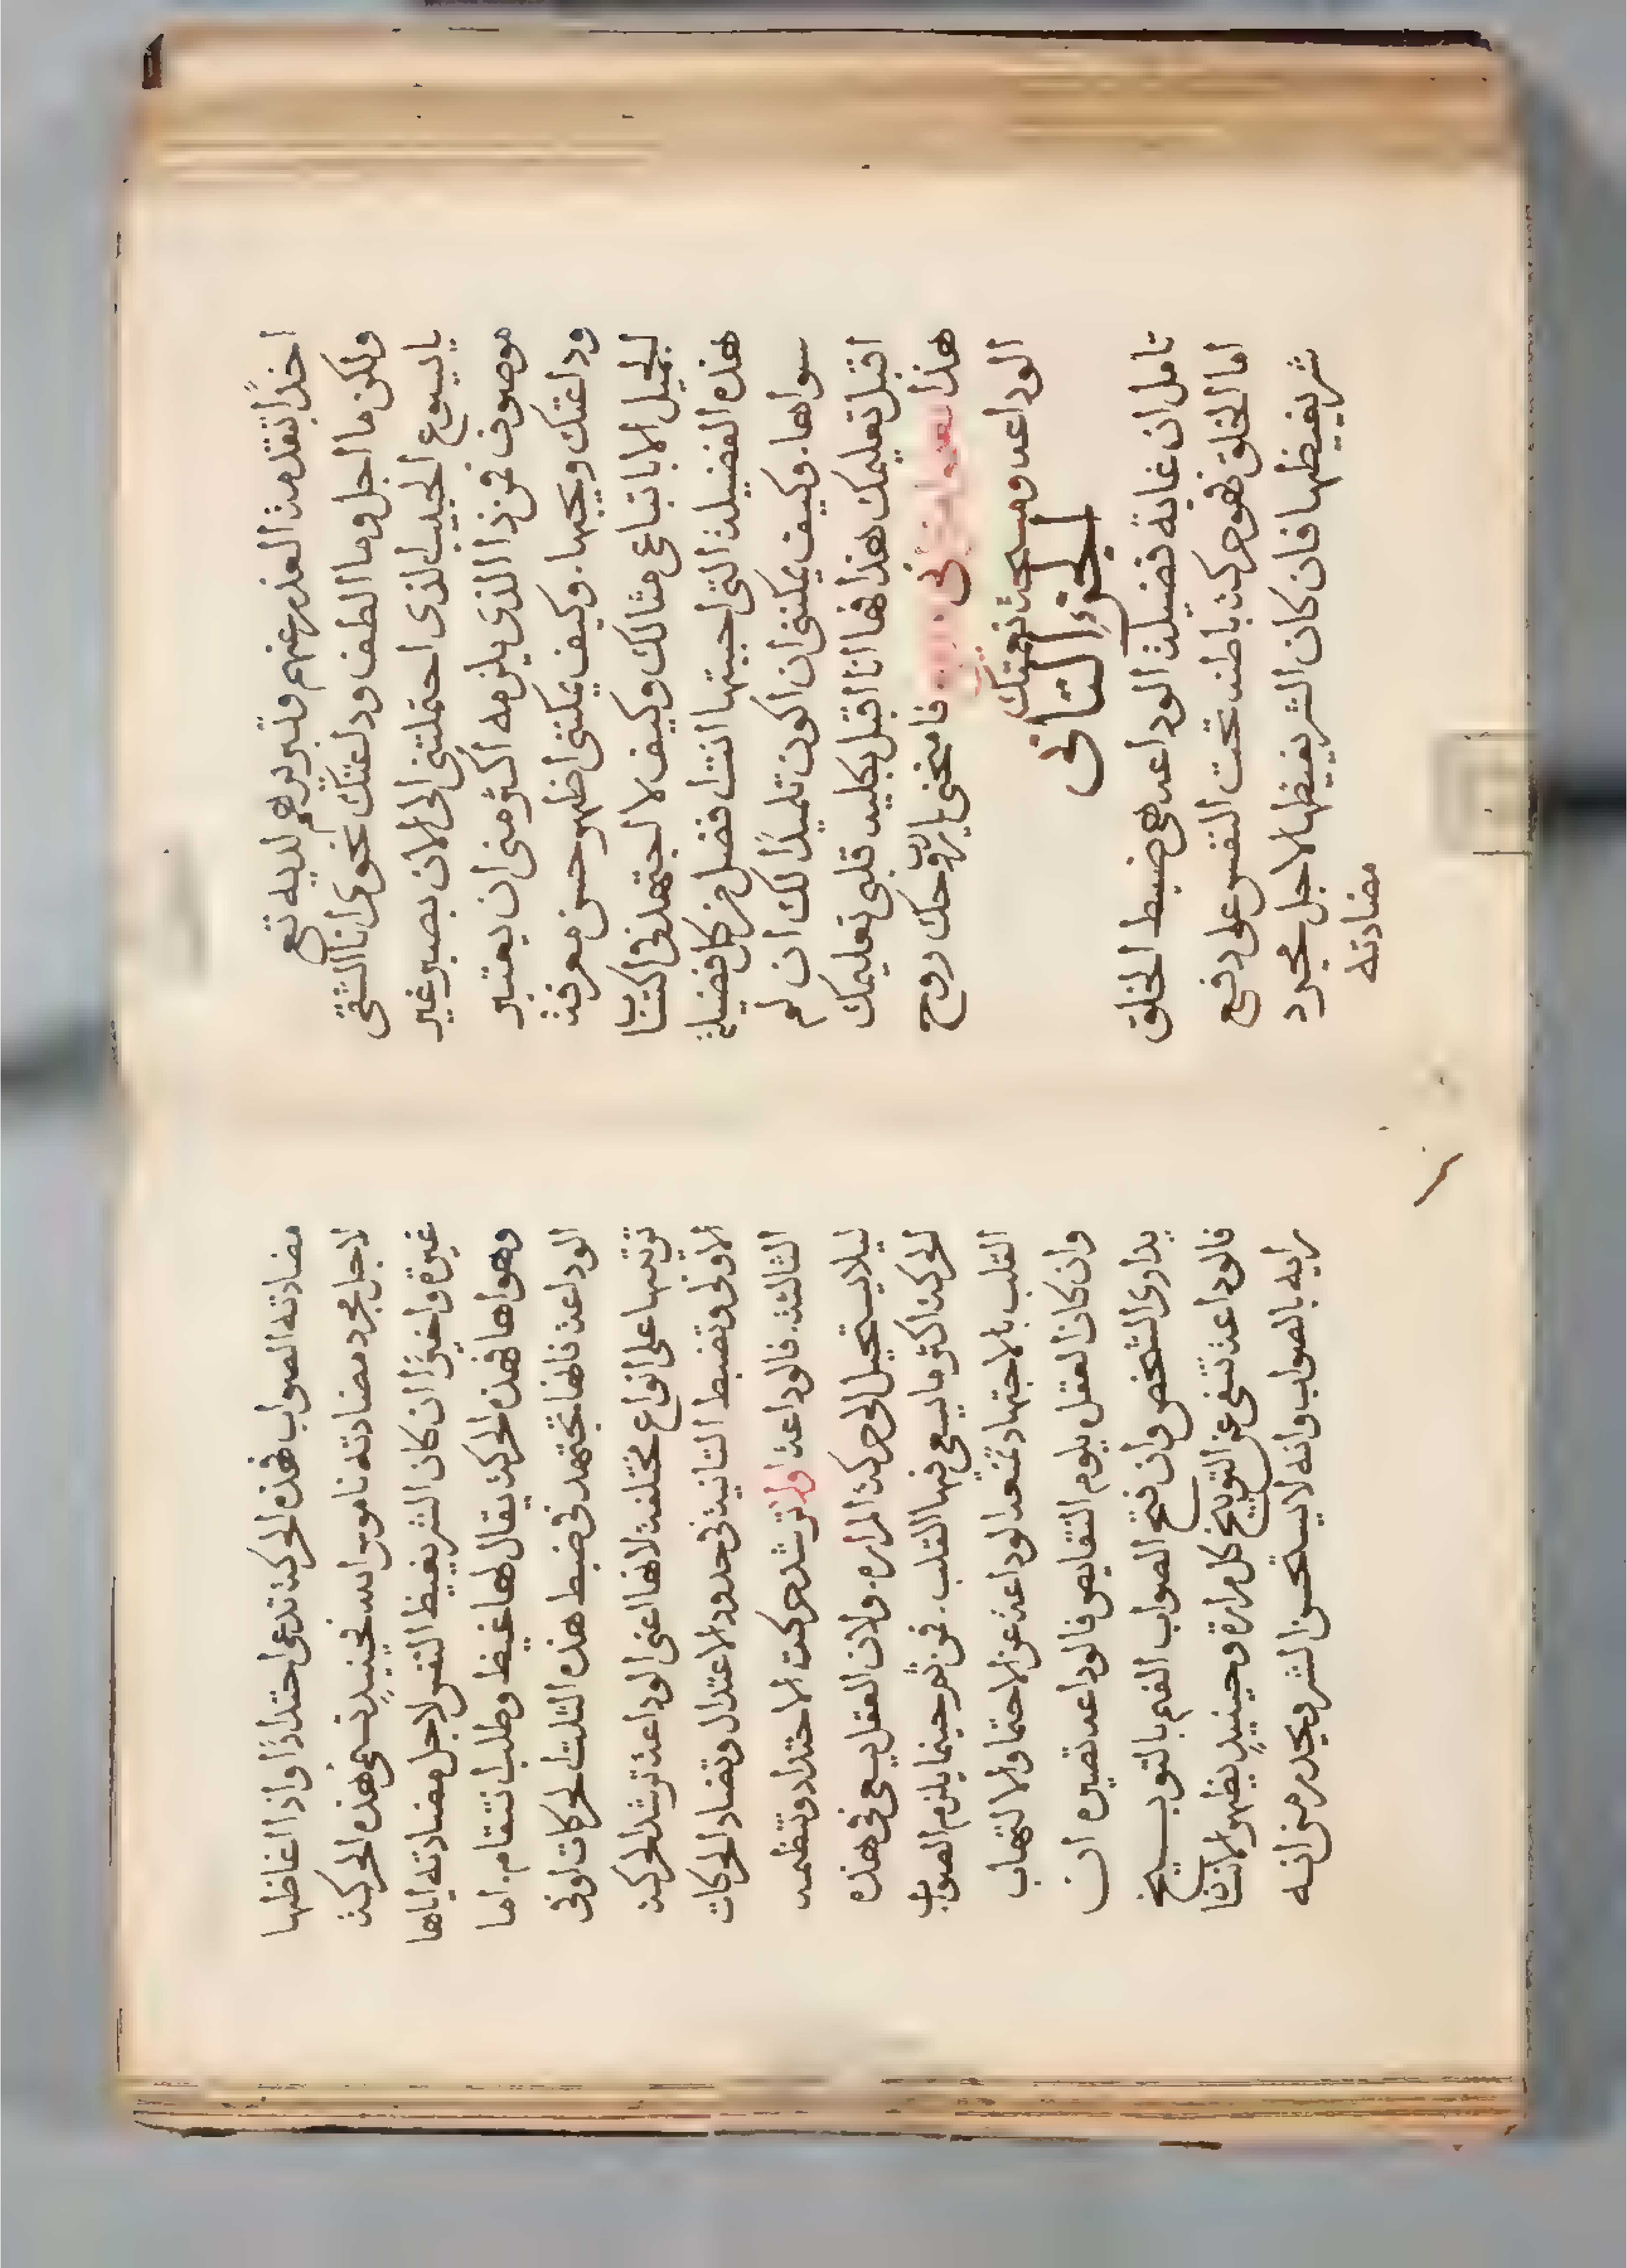 اخذًا بتقدمة العذر عنهم وتبريرهم لديه تع
ولكن ما اجل وما الطف ودعتك نحوى انا الشقى
يا يسوع الحبيب لذى احتملتنى الى الان بصبر غير
موصوف فمن ذا الذى يلزمه اكثر منى ان يعتبر
وداعتك ويحبها. وكيف يمكننى اظهر حسن معرفة
لجميل الا باتباع مثالك وكيف لا اجتهد فى اكتساب
هذه الفضيلة التى احببتها انت افضل من كل فضيلة
سواها. وكيف يمكننى ان اكون تلميذًا لك ان لم
اقبل تعليمك هذا فها انا اقبل بكلية قلبى تعليمك
هذا فامنحنى يا رب روحك روح
الوداعه ومحبة نعمتك
الجزء التانى
تامل ان غاية فضيلة الوداعه هى ضبط الخلق
اما الخلق فهو حركة باطنه تحت النفس على دفع
شر يغيظها فان كان الشر يغيظها لاجل مجرد
مضادته
مضادته الصواب فهذه الحركة تدعى احتدادًا واذا اغاظها
لاجل مجرد مضادته ناموس الله فحينيذٍ تسمى هذه الحركة
غيرة واخيرًا ان كان الشر يغيظ النفس لاجل مضادته اياها
وهواها فهذه الحركة يقال لها غيظ وطلب انتقام. اما
الوداعة فانها تجتهد فى ضبط هذه الثلث الحركات لوفى
توتتها على انواع مختلفة لانها اعنى الوداعة ترشد الحركة
الاولى وتضبط التانية فى حدود الاعتدال وتضاد الحركات
الثالثة. فالوداعة اولا ترشد حركت الاحتداد وتنظمه
ليلا يستحيل الى حركة المراره. ولان العقل يسعى فى هذه
الحركة اكثر ما يسعى فيها القلب. فمن ثم حينما يلزم الصواب
القلب بالاجتهاد تمنعه الوداعة عن الاحتما والالتهاب
وان كان العقل يلوم النقايص فالوداعه تصيره ان
يداوى الشخص وان فتح الصواب الفم بالتوبيخ
فالوداعة تنفى عن التوبيخ كل مرارة وحينيذٍ يظهر الانسان
رايه بالصواب وانه لا يستحسن الشر ويحيد من انه